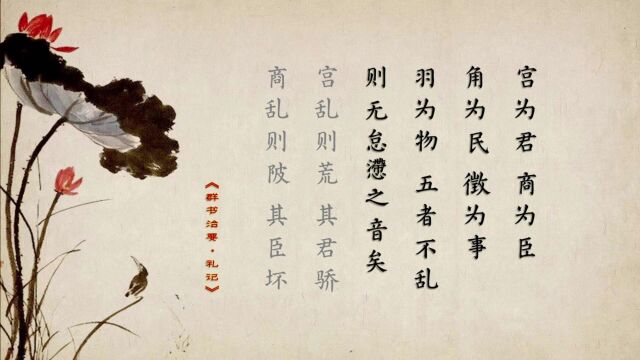 宫为君 商为臣
角为民 徵为事
羽为物 五者不乱
则无怠懘之音矣
宫乱则荒 其君骄
商乱则陂 其臣坏
《群书治要·礼记》